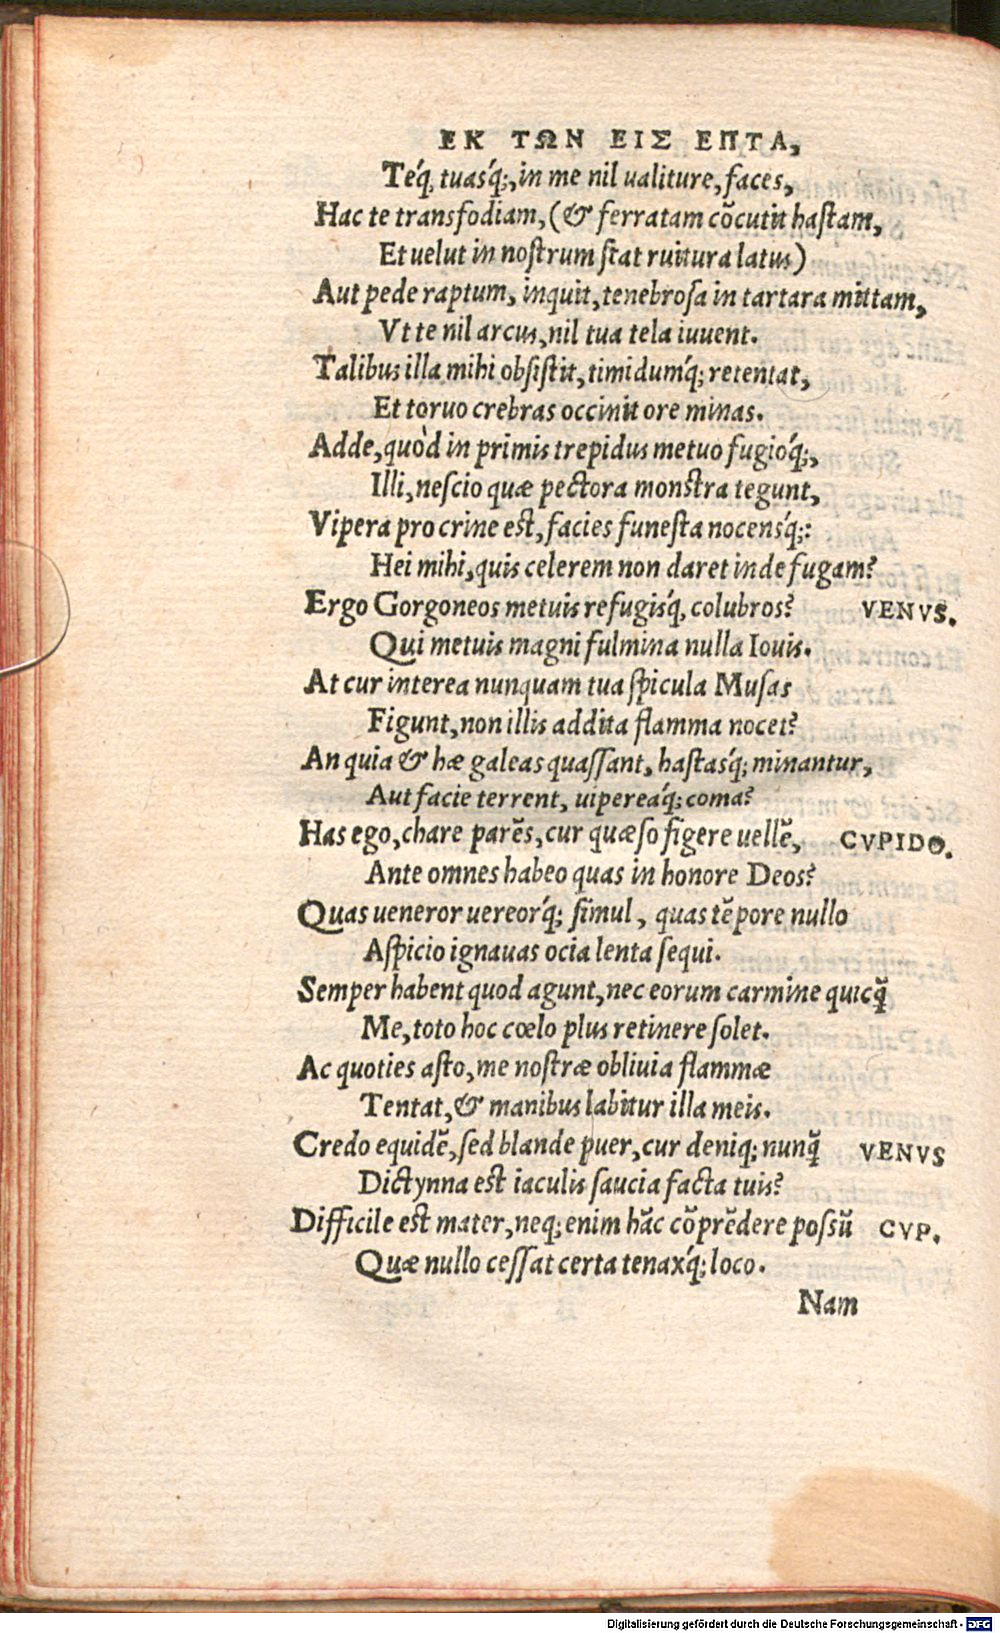 ΕΚ ΤΩΝ ΕΙΣ ΕΠΤΑ,
Teq́;, tuasq́;, in me nil ualiture, faces,
Hac te transfodiam, (& ferratam cõcutit hastam,
Et uelut in nostrum stat ruitura latus)
Aut pede raptum, inquit, tenebrosa in tartara mittam,
Vt te nil arcus, nil tua tela iuuent.
Talibus illa mihi obsistit, timidumq́; retentat,
Et toruo crebras occinit ore minas.
Adde, quòd in primis trepidus metuo fugioq́;,
Illi, nescio quæ pectora monstra tegunt,
Vipera pro crine est, facies funesta nocensq́;:
Hei mihi, quis celerem non daret inde fugam?
Ergo Gorgoneos metuis refugisq́, colubros? VENVS.
Qui metuis magni fulmina nulla Iouis.
At cur interea nunquam tua spicula Musas
Figunt, non illis addita flamma nocet?
An quia & hæ galeas quassant, hastasq́; minantur,
Aut facie terrent, uipereaq́; coma?
Has ego, chare parẽs, cur quæso figere uellẽ, CVPIDO.
Ante omnes habeo quas in honore Deos?
Quas ueneror uereorq́; simul, quas tẽpore nullo
Aspicio ignauas ocia lenta sequi.
Semper habent quod agunt, nec eorum carmine quicq̃
Me, toto hoc cœlo plus retinere solet.
Ac quoties asto, me nostræ obliuia flammæ
Tentat, & manibus labitur illa meis.
Credo equidẽ, sed blande puer, cur deniq; nunq̃ VENVS
Dictynna est iaculis saucia facta tuis?
Difficile est mater, neq; enim hãc cõprẽdere possũ CVP.
Quæ nullo cessat certa tenaxq́; loco.
Nam
Digitalisierung gefördert durch die Deutsche Forschungsgemeinschaft - DFG